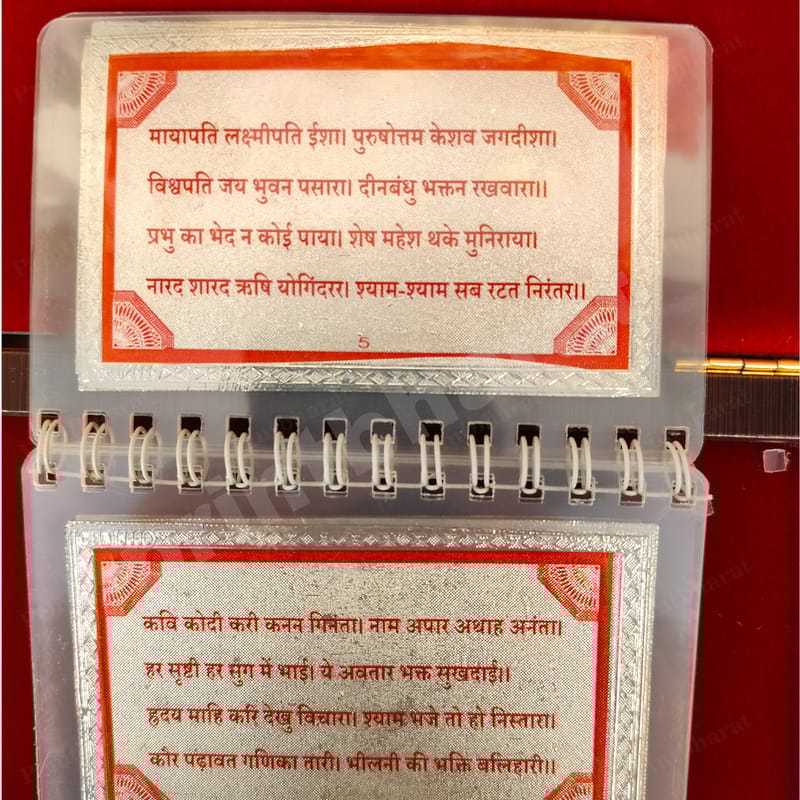 मायापति लक्ष्मीपति ईशा। पुरुषोत्तम केशव जगदीशा।
विश्वपति जय भुवन पसारा। दीनबंधु भक्तन रखवारा।।
प्रभु का भेद न कोई पाया। शेष महेश थके मुनिराया।
नारद शारद ऋषि योगिंदरर। श्याम-श्याम सब रटत निरंतर।।
5
कवि कोदी करी कनन गिनंता। नाम अपार अथाह अनंता।
हर सृष्टी हर सुग में भाई। ये अवतार भक्त सुखदाई।।
ह्रदय माहि करि देखु विचारा। श्याम भजे तो हो निस्तारा।
कौर पढ़ावत गणिका तारी। भीलनी की भक्ति बलिहारी।।
printbharat